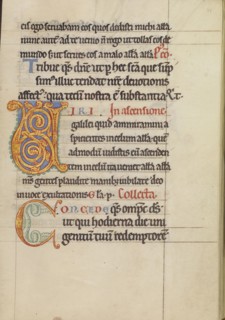 cis ego servabam eos quos dedisti michi alła
nunc autem ad te venio n̄ rogo ut tollas eos de
mundo sed serves eos a malo alła alła
Tribue qs dñe ut p hęc sca que sūp
simus illuc tendat nr̄e devotionis
affect' qua tecū nostra ē substantia
VIRI In ascensione
galilei quid admiramini a
spicientes in celum alła que
admodū vidistis eū ascenden
tem in celū ita veniet alła alła
oms gentes plaudite manib; iubilate deo
in voce exultationis Collecta
Concede qs omps ds
ut qui hodierna die uni
genitū tuū redemptorē